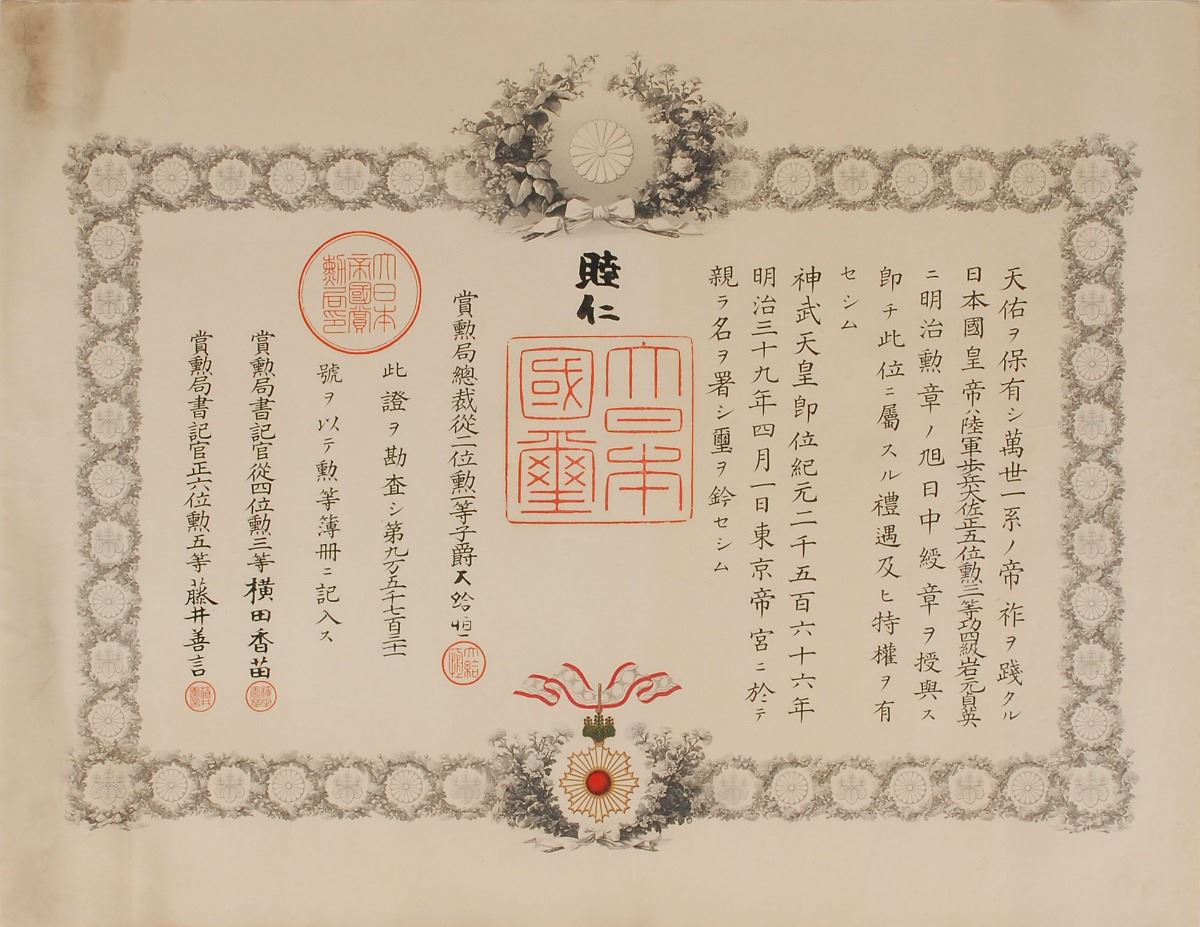 天佑ヲ保有シ萬世一系ノ帝祚ヲ踐タル
日本國皇帝ハ陸軍歩兵大佐正五位勲三等功四級岩元貞英
ニ明治勲章ノ旭日中綬章ヲ授與ス
卽チ此位ニ屬スル禮遇及ヒ特權ヲ有
セシム
神武天皇卽位紀元二千五百六十六年
明治三十九年四月一日東京帝宮ニ於テ
親ラ名ヲ署シ璽ヲ鈐セシム
睦仁
大日本國璽
賞勲局總裁從二位勲一等子爵大給恒
此證ヲ勘査シ第九万五千七百三十一
號ヲ以テ勲等簿册ニ記入ス
大日本帝國賞勲局印
賞勲局書記官從四位勲三等横田香苗
賞勲局書記官正六位勲五等藤井善言